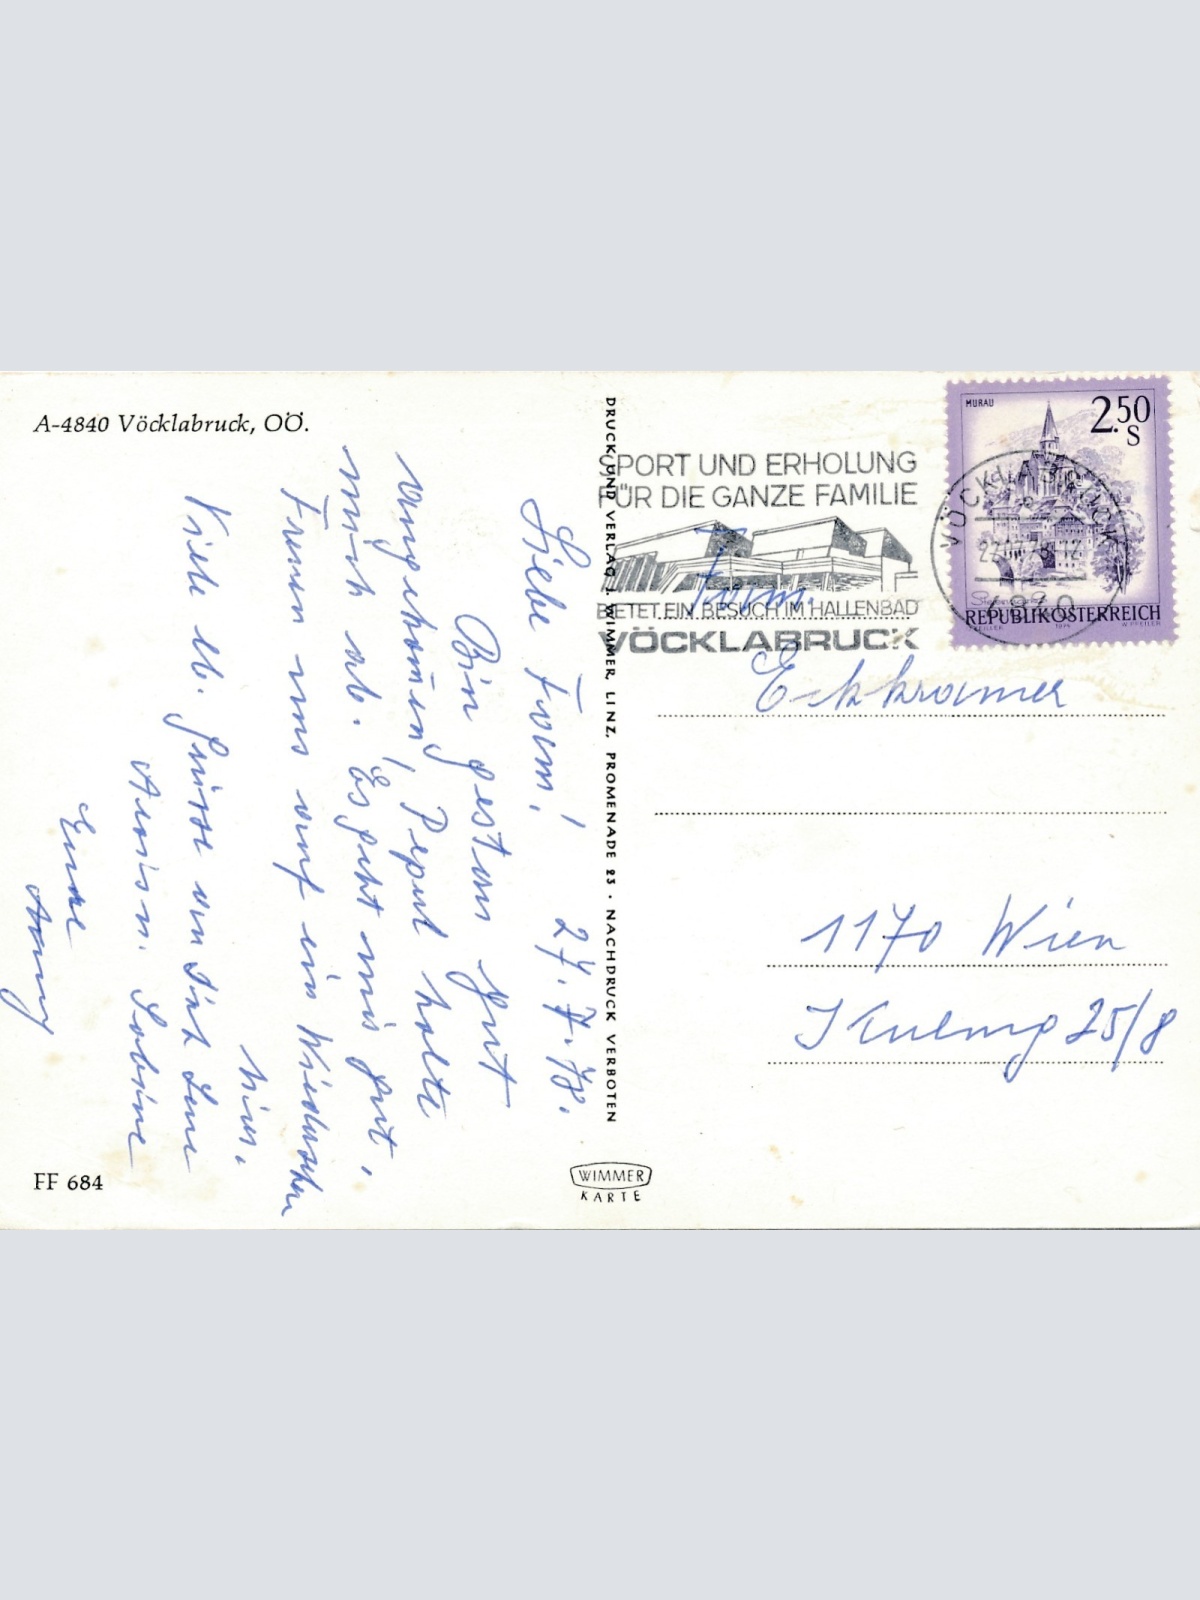 A-4840 Vöcklabruck, OÖ.
Liebe 27.7.78.
Bin gestern gut
angekommen, Pepul holte
mich ab. Es geht mir gut,
Freuen uns auf ein Wiedersehen
hier.
Viele lb. Grüsse an
Sabine
Eure
Anny
FF 684
DRUCK UND VERLAG J. WIMMER, LINZ, PROMENADE 23 · NACHDRUCK VERBOTEN
WIMMER
KARTE
SPORT UND ERHOLUNG
FÜR DIE GANZE FAMILIE
BIETET EIN BESUCH IM HALLENBAD
VÖCKLABRUCK
MURAU
2.50
S
VÖCKLABRUCK
REPUBLIK ÖSTERREICH
Fam.
Eckkramer
1170 Wien
25/8